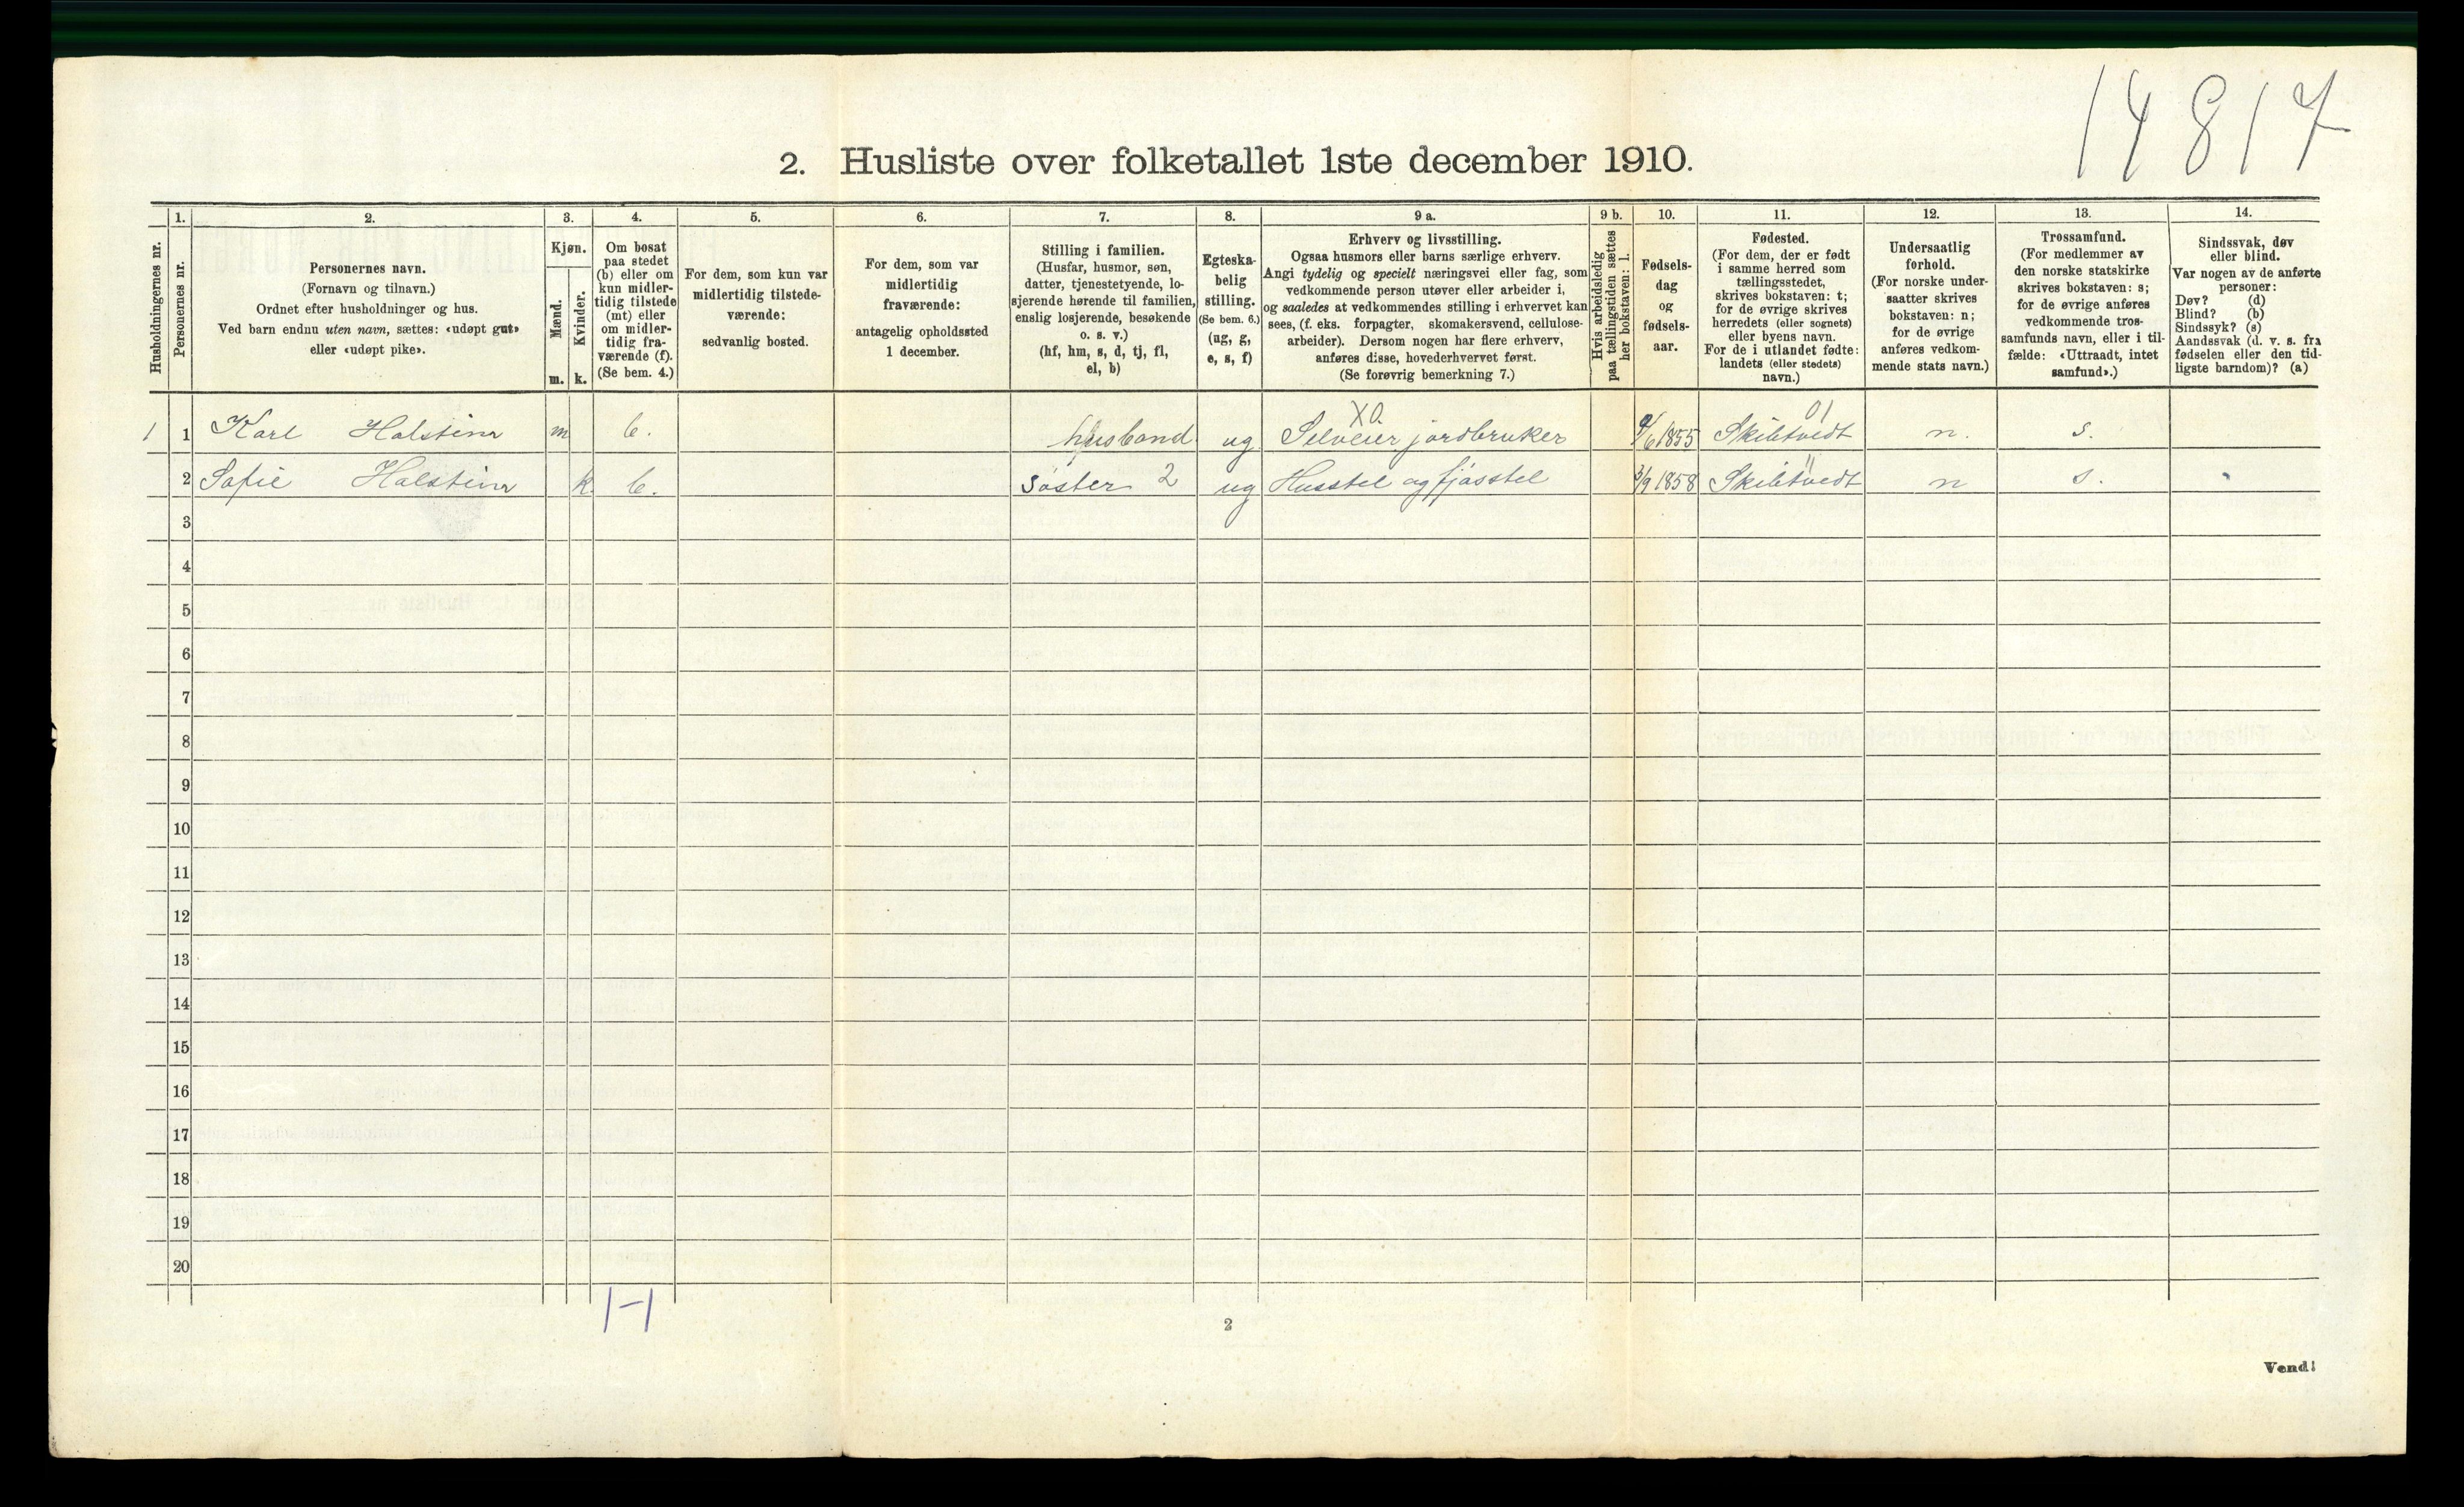 14817
2. Husliste over folketallet 1ste december 1910.
Husholdningernes nr.
1.
Personernes nr.
2.
Personernes navn.
(Fornavn og tilnavn.)
Ordnet efter husholdninger og hus.
Ved barn endnu uten navn, sættes: «udøpt gut»
eller «udøpt pike».
3.
Kjøn.
Mænd.
Kvinder.
m. k.
4.
Om bosat
paa stedet
(b) eller om
kun midler-
tidig tilstede
(mt) eller
om midler-
tidig fra-
værende (f).
(Se bem. 4.)
5.
For dem, som kun var
midlertidig tilstede-
værende:
sedvanlig bosted.
6.
For dem, som var
midlertidig
fraværende:
antagelig opholdssted
1 december.
7.
Stilling i familien.
(Husfar, husmor, søn,
datter, tjenestetyende, lo-
sjerende hørende til familien,
enslig losjerende, besøkende
o. s. v.)
(hf, hm, s, d, tj, fl,
el, b)
8.
Egteska-
belig
stilling.
(Se bem. 6.)
(ug, g,
e, s, f)
9 a.
Erhverv og livsstilling.
Ogsaa husmors eller barns særlige erhverv.
Angi tydelig og specielt næringsvei eller fag, som
vedkommende person utøver eller arbeider i,
og saaledes at vedkommendes stilling i erhvervet kan
sees, (f. eks. forpagter, skomakersvend, cellulose-
arbeider). Dersom nogen har flere erhverv,
anføres disse, hovederhvervet først.
(Se forøvrig bemerkning 7.)
9 b.
Hvis arbeidsledig
paa tællingstiden sættes
her bokstaven: l.
10.
Fødsels-
dag
og
fødsels-
aar.
11.
Fødested.
(For dem, der er født
i samme herred som
tællingsstedet,
skrives bokstaven: t;
for de øvrige skrives
herredets (eller sognets)
eller byens navn.
For de i utlandet fødte:
landets (eller stedets)
navn.)
12.
Undersaatlig
forhold.
(For norske under-
saatter skrives
bokstaven: n;
for de øvrige
anføres vedkom-
mende stats navn.)
13.
Trossamfund.
(For medlemmer av
den norske statskirke
skrives bokstaven: s;
for de øvrige anføres
vedkommende tros-
samfunds navn, eller i til-
fælde: «Uttraadt, intet
samfund».)
14.
Sindssvak, døv
eller blind.
Var nogen av de anførte
personer:
Døv? (d)
Blind? (b)
Sindssyk? (s)
Aandssvak (d. v. s. fra
fødselen eller den tid-
ligste barndom)? (a)
X0 01
1 1 Karl Halstinr m b. husbond ug Selveier jordbruker 1855 Skibtvedt n. s.
2 Sofie Halstinr k b. søster 2 ug Husstel og fjøsstel 3/9 1858 Skibtvedt n s.
3
4
5
6
7
8
9
10
11
12
13
14
15
16
17
18
19
20
1-1
2
Vend!